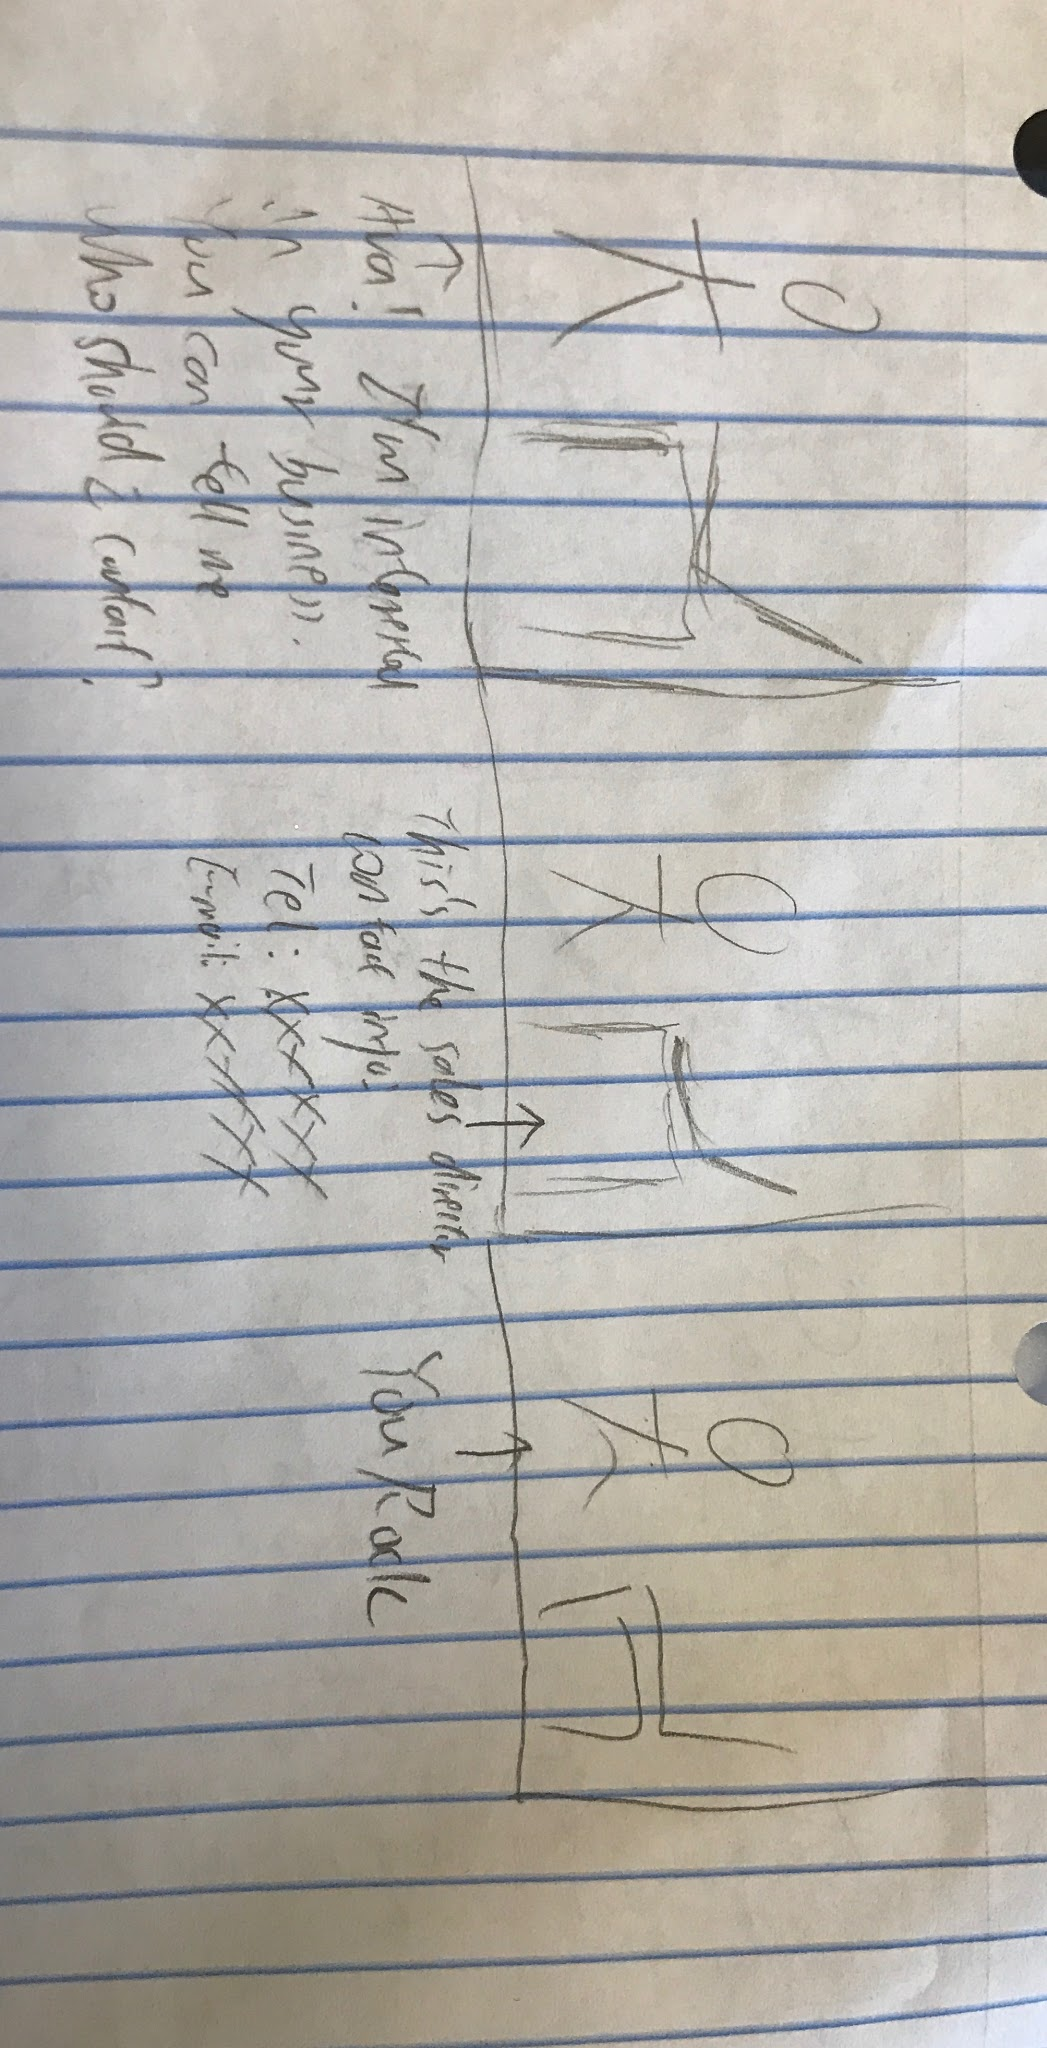 Ava! I'm interested
in your business.
You can tell me
who should i contact?
This's the sales director
contact info:
Tel: XXXXX
Email: XXXXX
You Rock